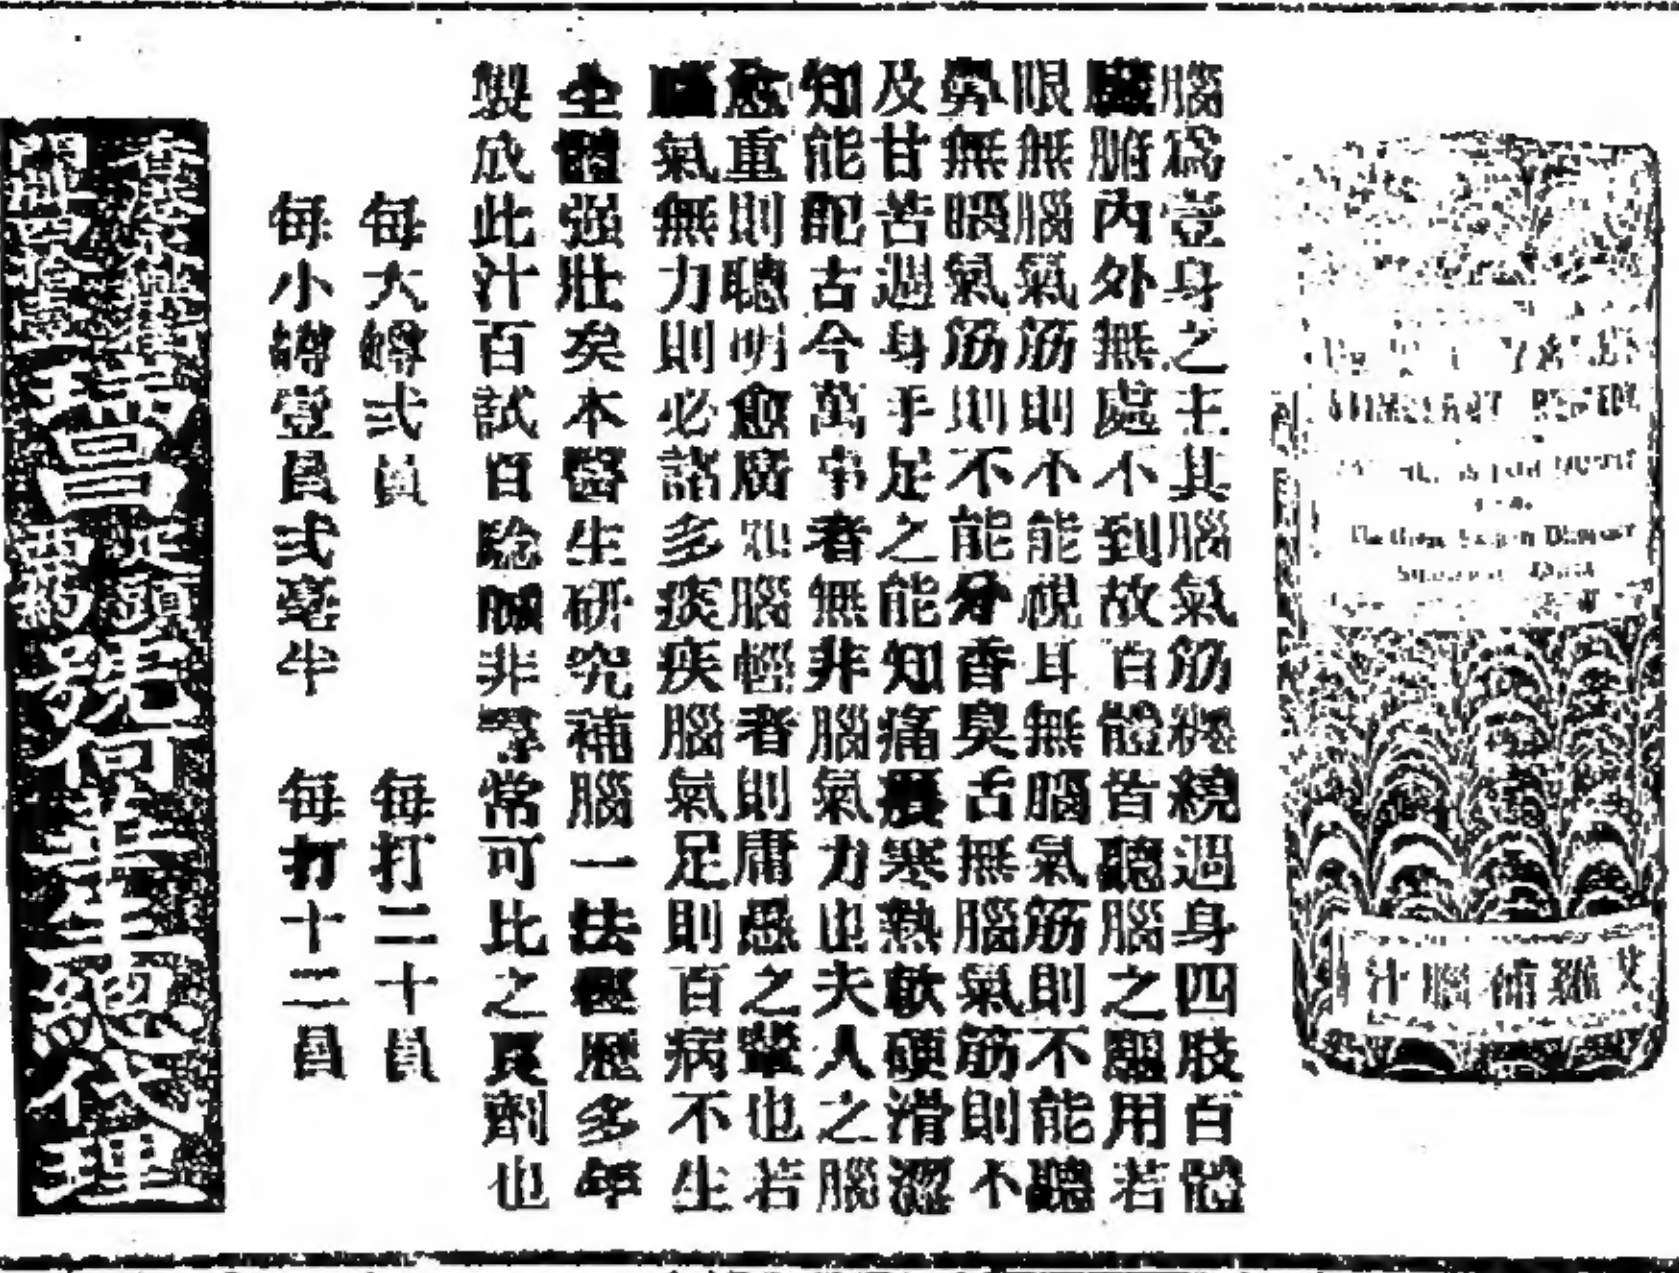 艾羅補腦汁
腦為壹身之主其腦氣筋纏繞過身四肢百體
臟腑內外無處不到故百體皆聽腦之驅用若
眼無腦氣筋則不能視耳無腦氣筋則不能聽
鼻無腦氣筋則不能分香臭舌無腦氣筋則不
及甘苦週身手足之能知痛癢寒熱軟硬滑澀
知能配古今萬事者無非腦氣力也夫人之腦
愈重則聰明愈廣如腦輕者則庸愚之輩也若
腦氣無力則必諸多痰疾腦氣足則百病不生
全體强壯矣本醫生研究補腦一法經歷多年
製成此汁百試百騐誠非尋常可比之良劑也
每大罇弍員 每打二十員
每小罇壹員弍毫半 每打十二員
瑞昌
號何華生總代理